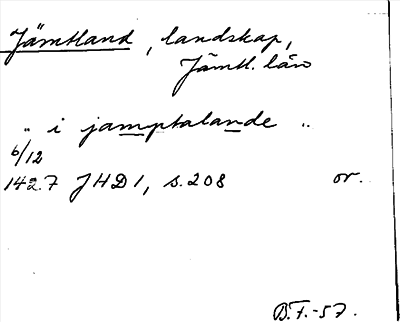 Jämtland, landskap,
Jämtl. län
.. i jamptalande ..
6/12
1427 JHD 1, s. 208 or.
B.F.-57.